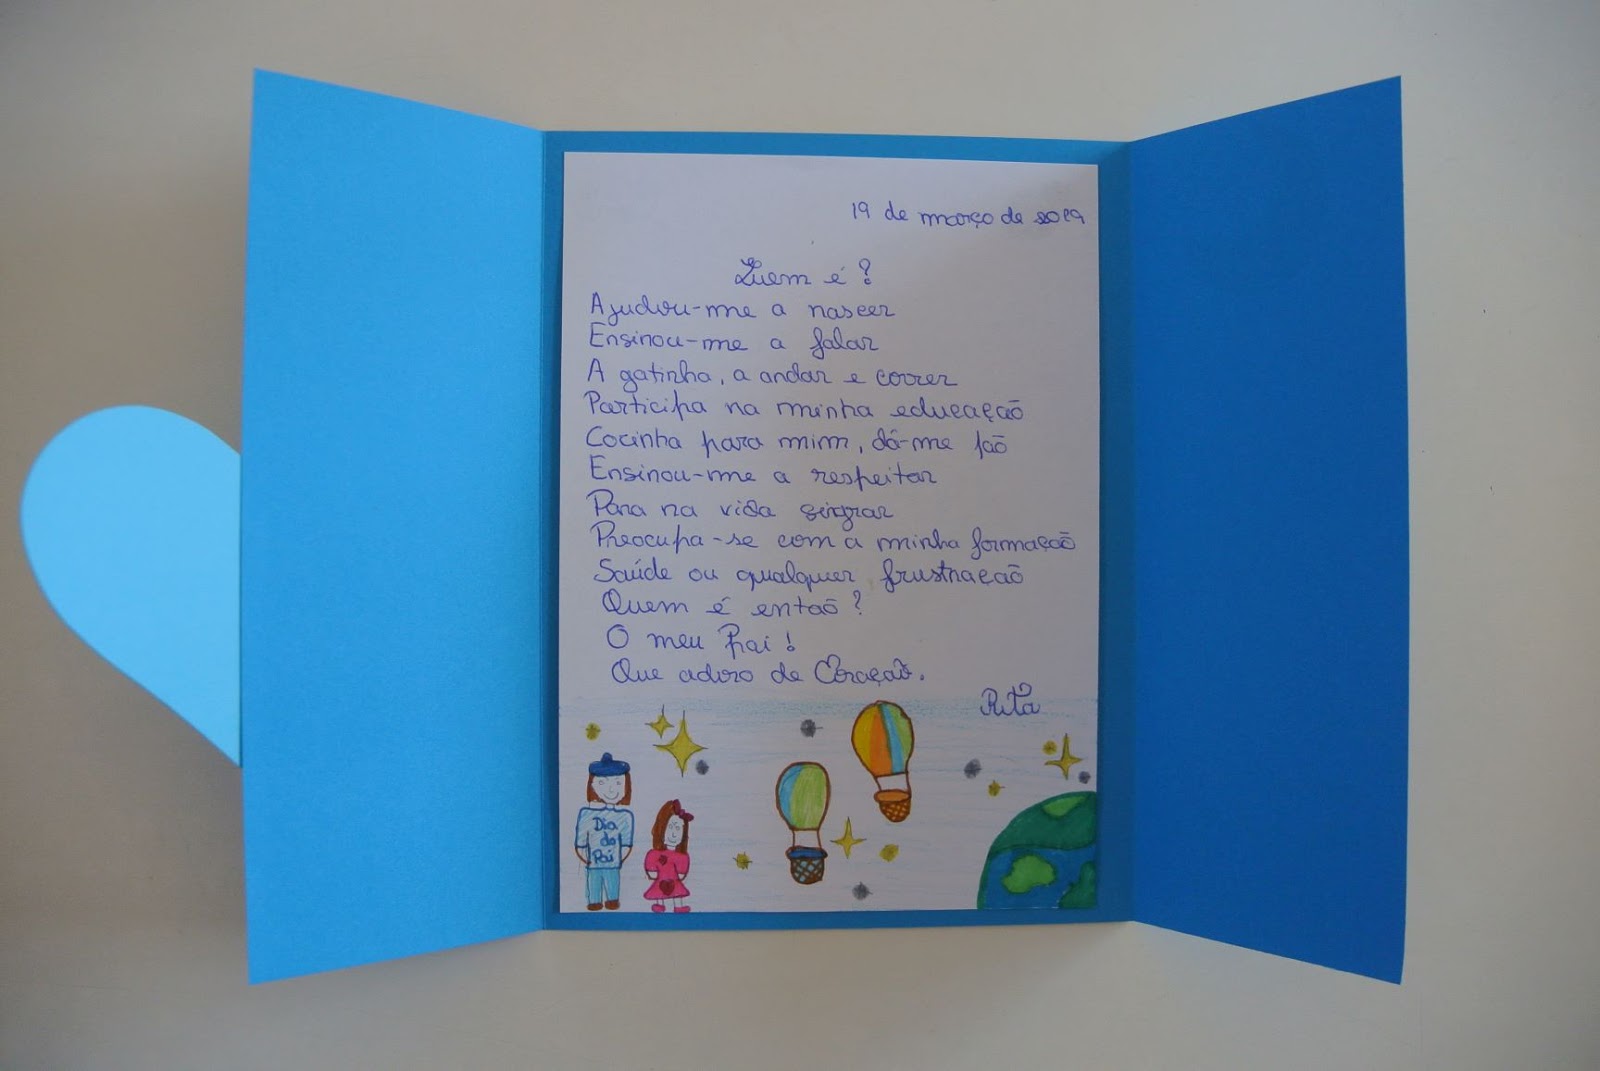 19 de março de 2019
Quem é?
Ajudou-me a nascer
Ensinou-me a falar
A gatinha, a andar e correr
Participa na minha educação
Cocinha para mim, dá-me pão
Ensinou-me a respeitar
Para na vida singrar
Preocupa-se com a minha formação
Saúde ou qualquer frustração
Quem é então?
O meu Pai!
Que adoro de Coração.
Rita
Dia
do
Pai